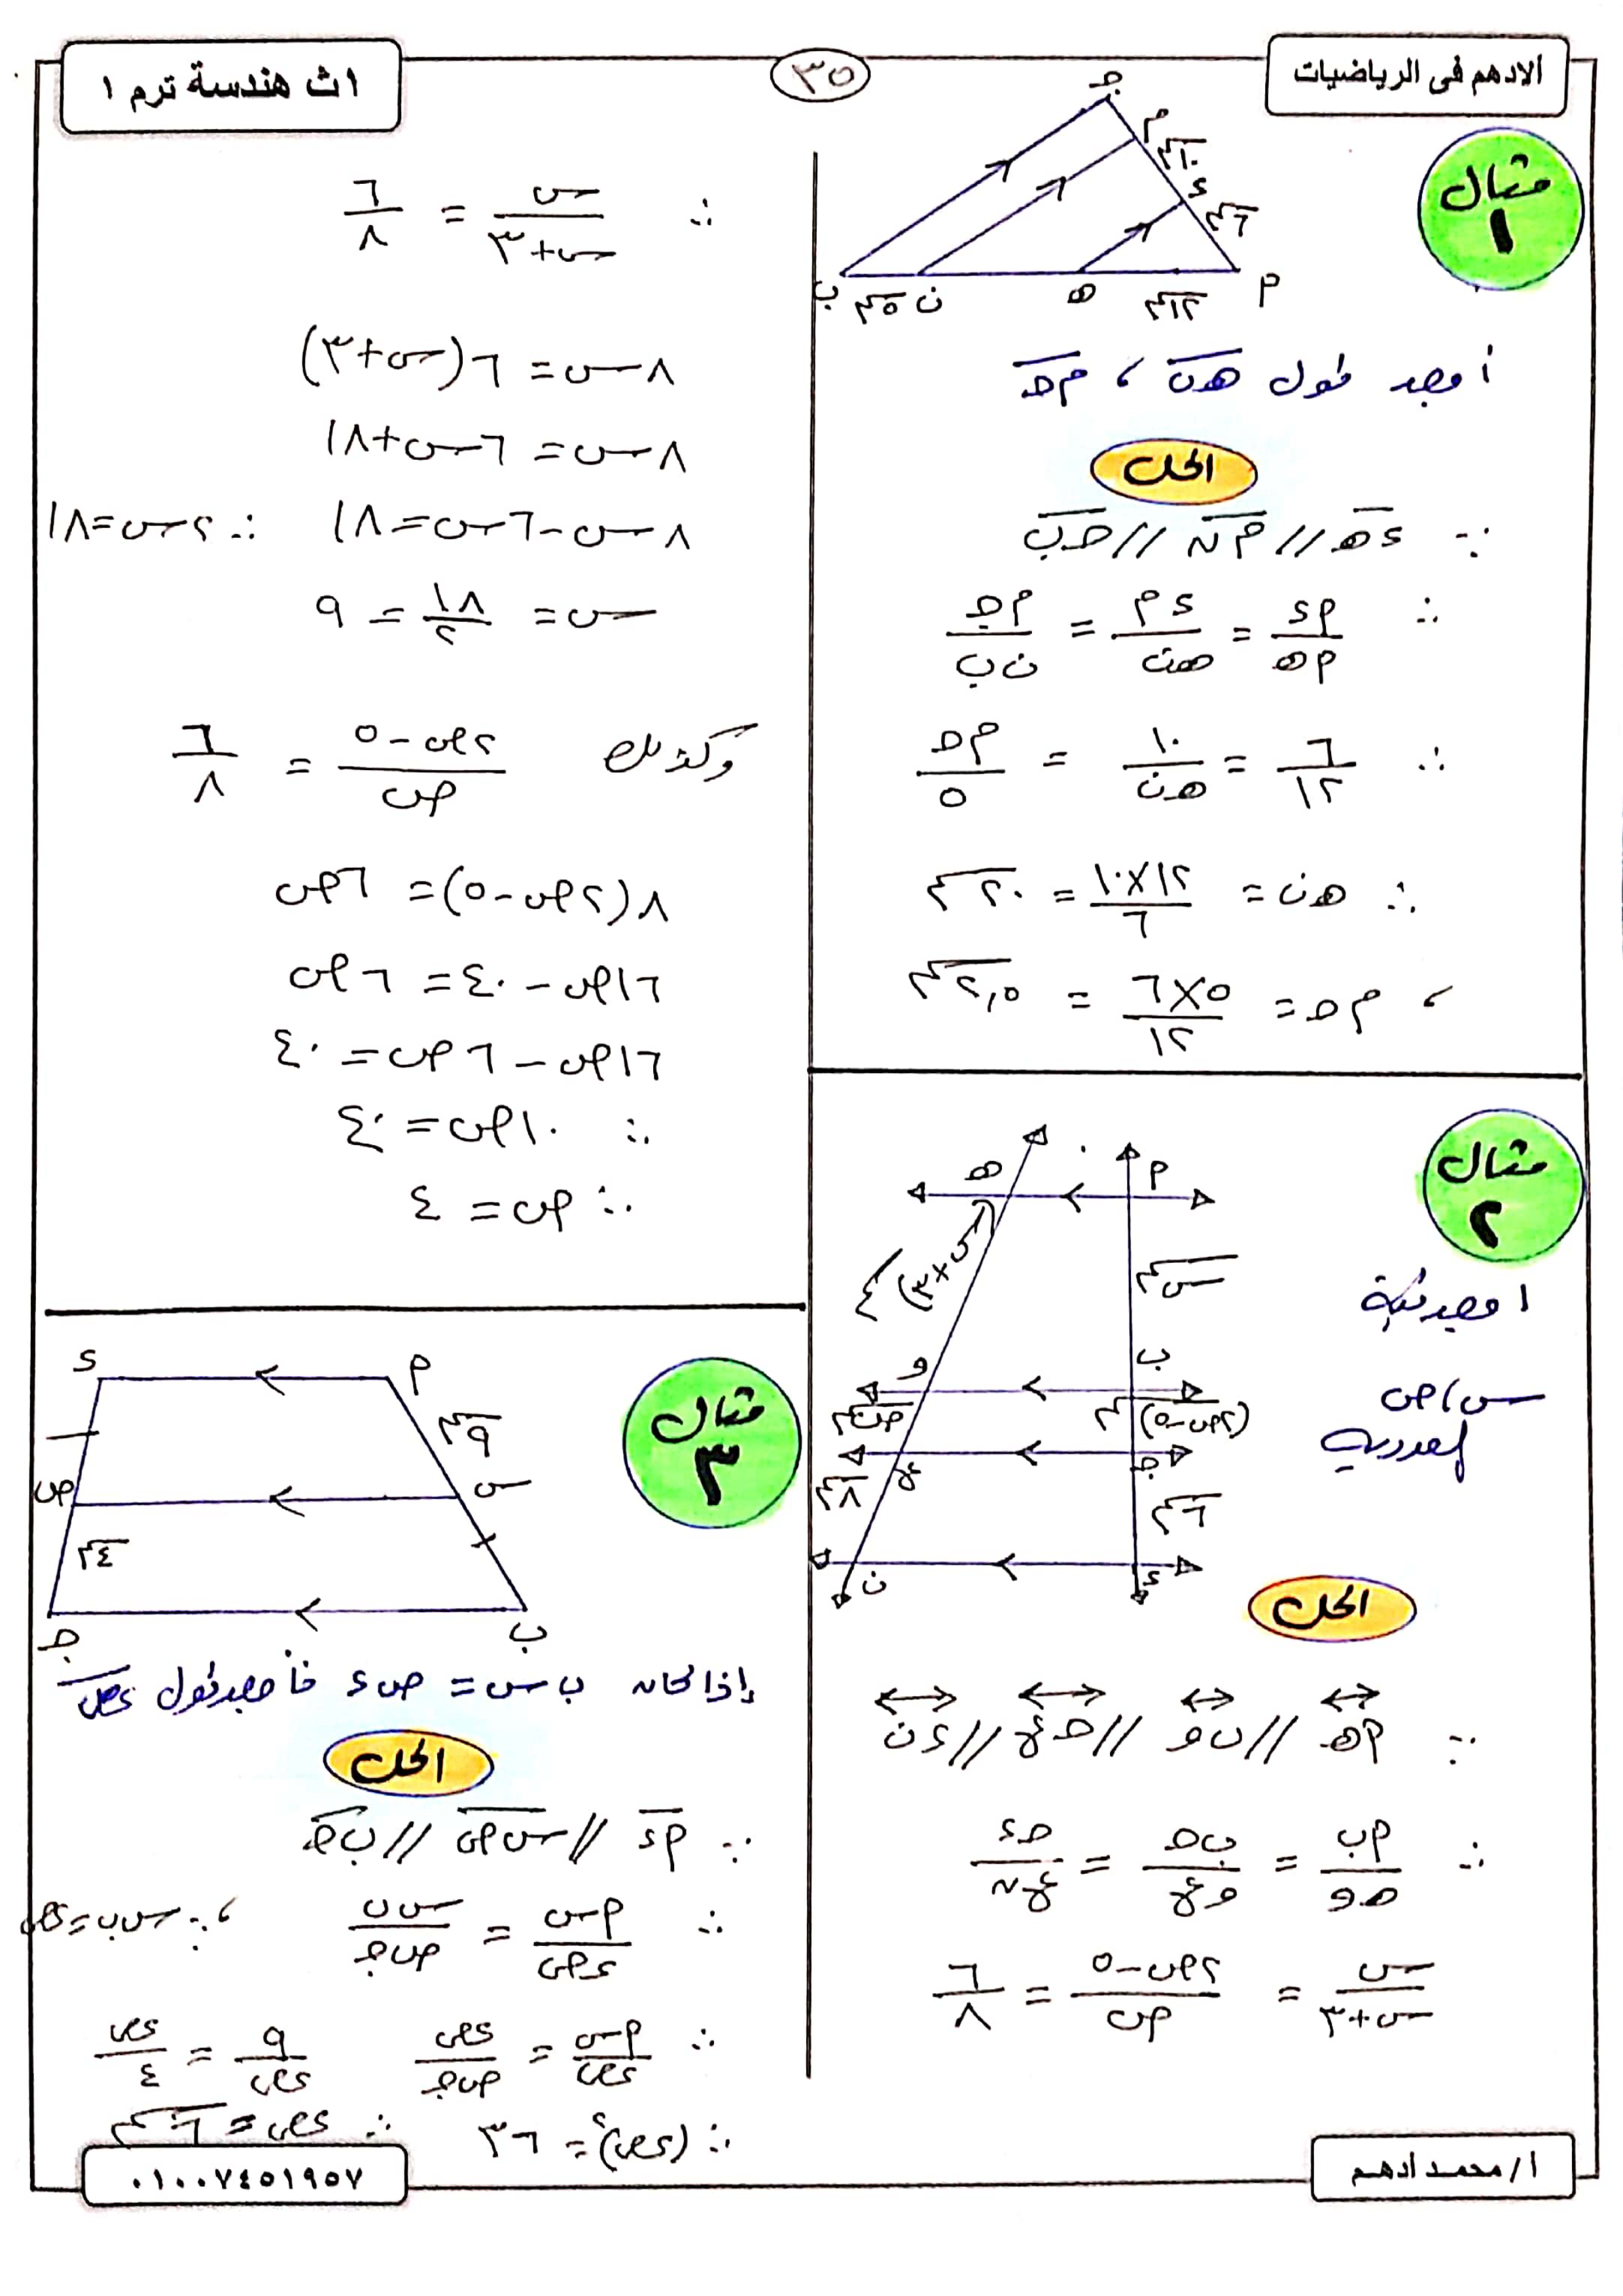 الادهم فى الرياضيات
٣٥
١ث هندسة ترم ١
مثال ١
جـ
م
١٠سم
د
٦سم
ب ٥سم ن هـ ١٢سم أ
أوجد طول هـ ن ، م جـ
الحل
∵ د هـ // م ن // جـ ب
∴ أد/أهـ = د م/هـ ن = م جـ/ن ب
∴ ٦/١٢ = ١٠/هـ ن = م جـ/٥
∴ هـ ن = ١٢×١٠/٦ = ٢٠ سم
، م جـ = ٥×٦/١٢ = ٢,٥ سم
مثال ٢
هـ أ
(س+٣) سم
س سم
و ب
ص سم (٢ص-٥) سم
ع جـ
٨سم ٦سم
ن د
اوجد قيمة
س، ص
العددية
الحل
∵ أهـ // ب و // جـ ع // د ن
∴ أب/هـ و = ب جـ/و ع = جـ د/ع ن
س/س+٣ = ٢ص-٥/ص = ٦/٨
∴ س/س+٣ = ٦/٨
٨س = ٦(س+٣)
٨س = ٦س+١٨
٨س-٦س = ١٨ ∴ ٢س=١٨
س = ١٨/٢ = ٩
وكذلك ٢ص-٥/ص = ٦/٨
٨(٢ص-٥) = ٦ص
١٦ص-٤٠ = ٦ص
١٦ص-٦ص = ٤٠
∴ ١٠ص = ٤٠
∴ ص = ٤
مثال ٣
د أ
٩سم
ص س
٤سم
جـ ب
إذا كان ب س = ص د فأوجد طول د ص
الحل
∵ أد // س ص // ب جـ
∴ أس/د ص = س ب/ص جـ ، ∵ س ب = د ص
∴ أس/د ص = د ص/ص جـ ٩/د ص = د ص/٤
∴ (د ص)٢ = ٣٦ ∴ د ص = ٦ سم
أ/ محمد أدهم
٠١٠٠٧٤٥١٩٥٧